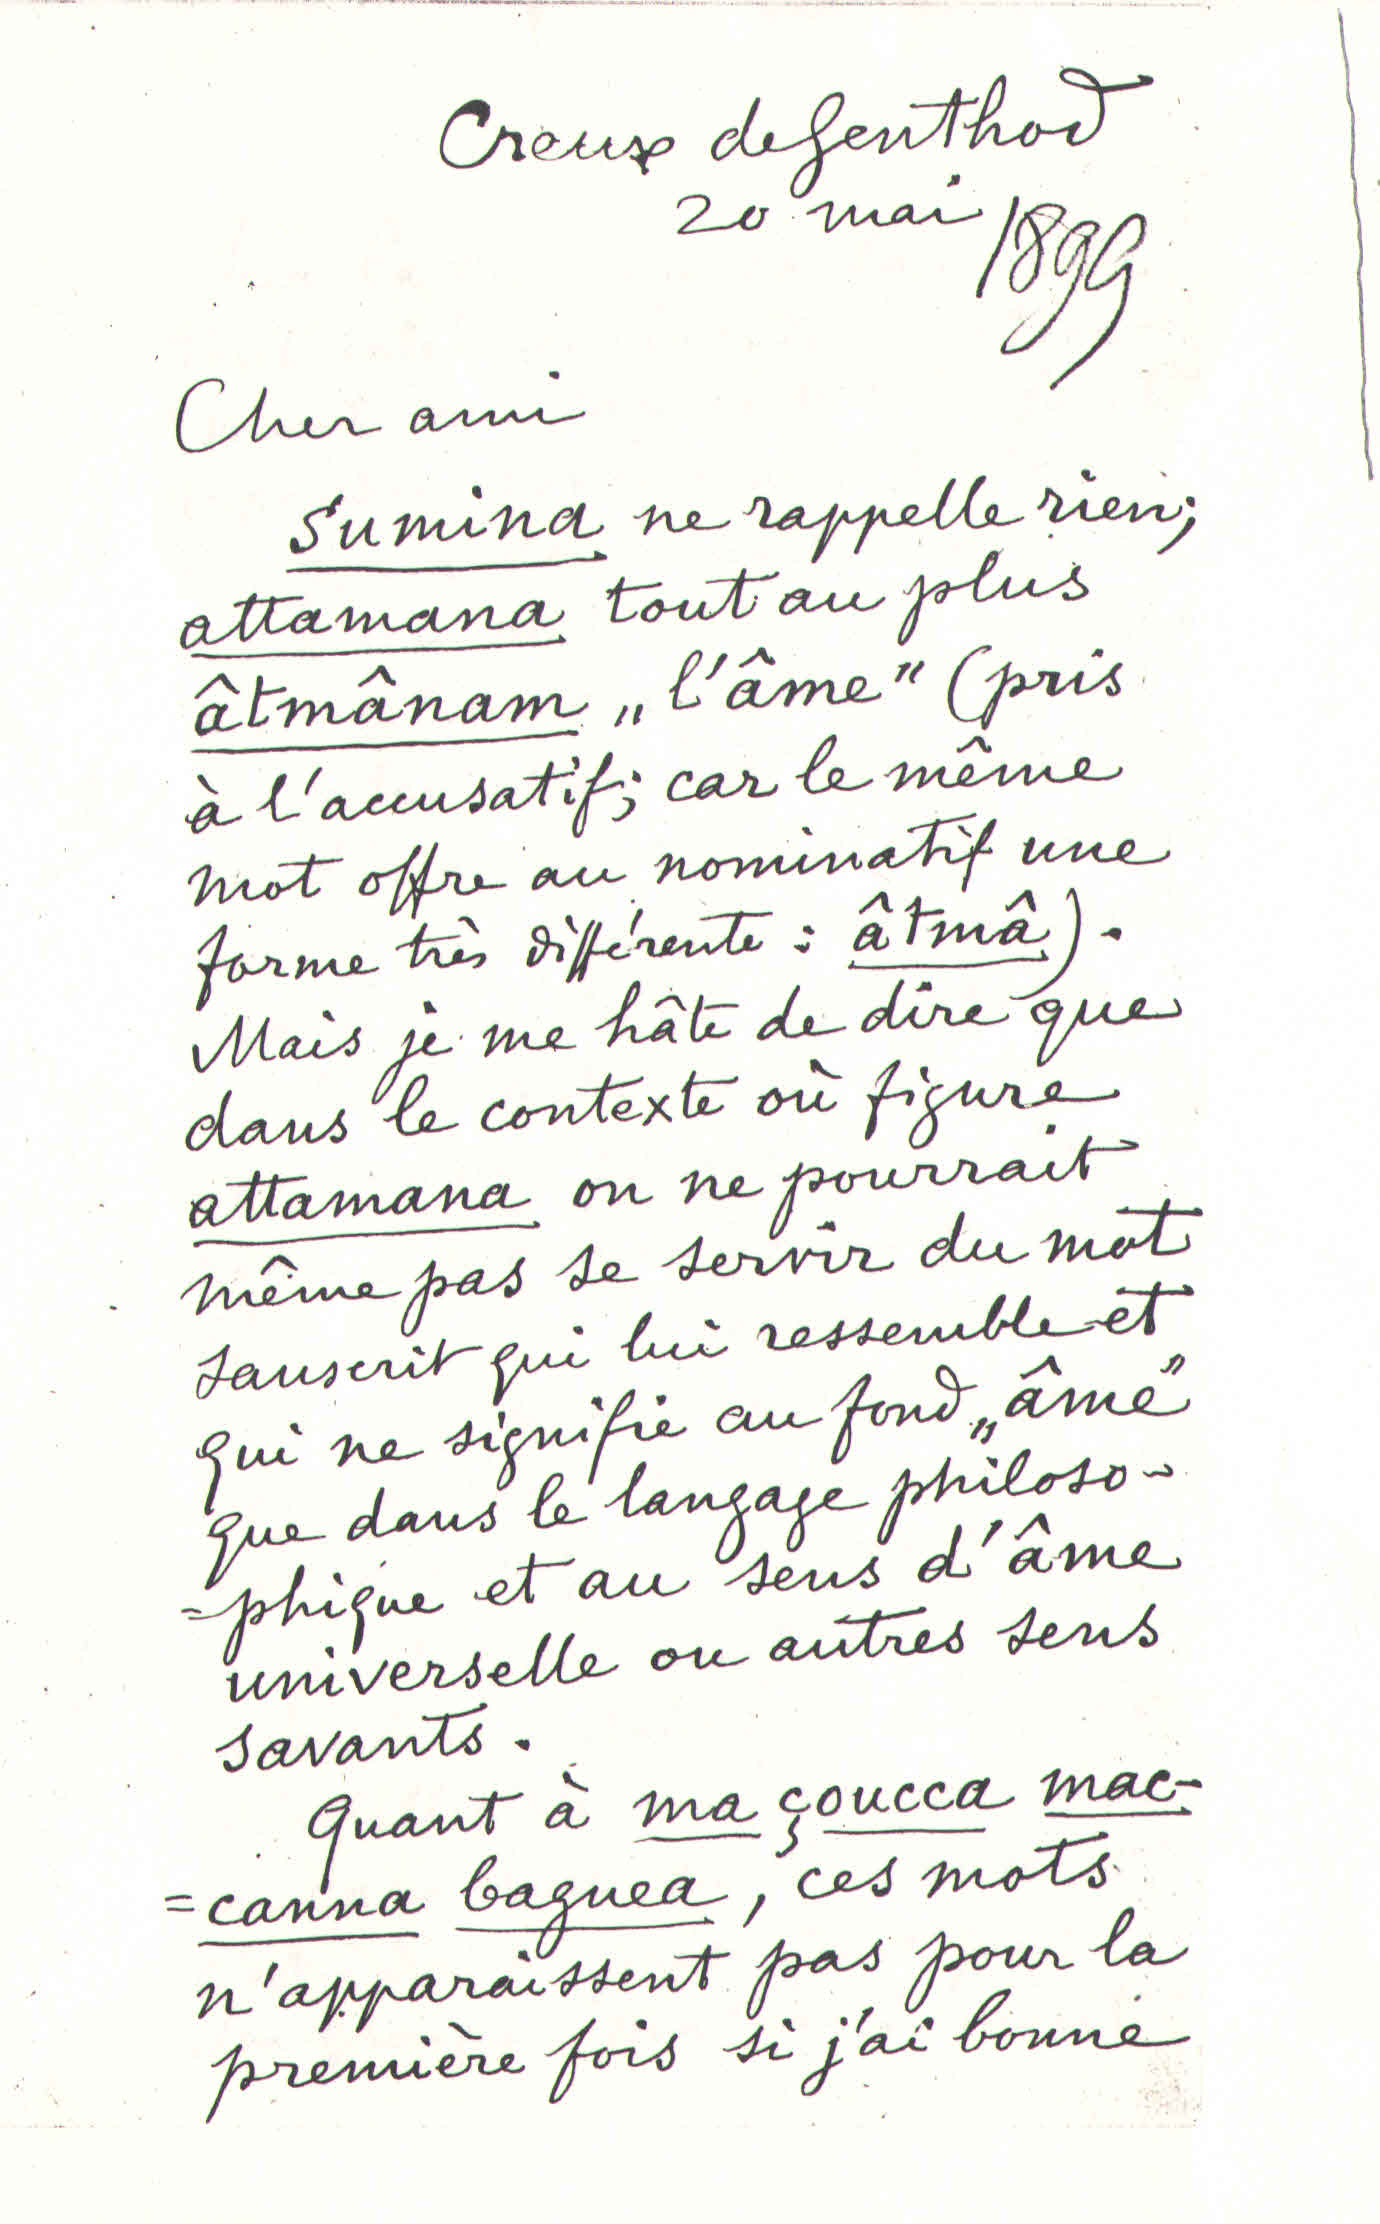 Creux de Genthod
20 mai 1899
Cher ami
Sumina ne rappelle rien;
attamana tout au plus
âtmânam „l'âme" (pris
à l'accusatif; car le même
mot offre au nominatif une
forme très différente : âtmâ).
Mais je me hâte de dire que
dans le contexte où figure
attamana on ne pourrait
même pas se servir du mot
sanscrit qui lui ressemble et
qui ne signifie au fond „âme"
que dans le langage philoso-
=phique et au sens d'âme
universelle ou autres sens
savants.
Quant à ma çoucca mac-
=canna baguea, ces mots
n'apparaissent pas pour la
première fois si j'ai bonne